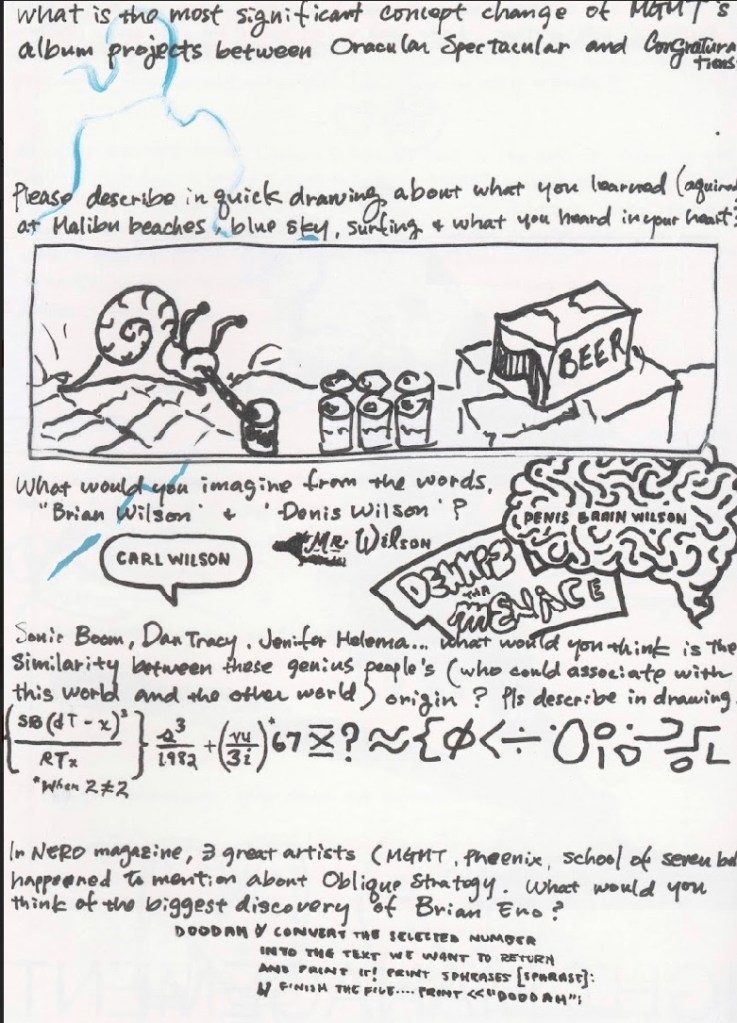 What is the most significant concept change of MGMT's
album projects between Oracular Spectacular and Congratura
tions
Please describe in quick drawing about what you learned (aquired
at Malibu beaches, blue sky, surfing & what you heard in your heart?
BEER
What would you imagine from the words,
"Brian Wilson" & 'Denis Wilson'?
PENIS BRAIN WILSON
Mr. Wilson
CARL WILSON
DENNIZ
THA
MENACE
Sonic Boom, Dan Tracy, Jenifer Helema... what would you think is the
Similarity between these genius people's (who could associate with
this world and the other world) origin? Pls describe in drawing.
{SB(dT-x)³
RTx} 3
1982 + (
3i)* 67 X? ≈ { ø < ÷
*When 2≠2
In NERO magazine, 3 great artists (MGMT, Pheenix, School of seven bel
happened to mention about Oblique Strategy. What would you
think of the biggest discovery of Brian Eno?
DOODAH // CONVERT THE SELECTED NUMBER
INTO THE TEXT WE WANT TO RETURN
AND PRINT IT! PRINT SPHRASES [SPHRASE]:
// FINISH THE FILE.... PRINT <<"DOODAH";